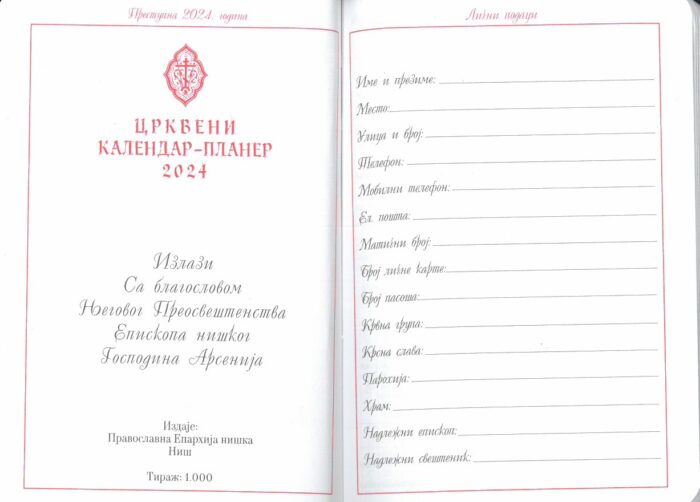 Преступна 2024. година
ЦРКВЕНИ
КАЛЕНДАР-ПЛАНЕР
2024
Излази
Са благословом
Његовог Преосвештенства
Епископа нишког
Господина Арсенија
Издаје:
Православна Епархија нишка
Ниш
Тираж: 1.000
Лични подаци
Име и презиме:
Место:
Улица и број:
Телефон:
Мобилни телефон:
Ел. пошта:
Матични број:
Број личне карте:
Број пасоша:
Крвна група:
Крсна слава:
Парохија:
Храм:
Надлежни епископ:
Надлежни свештеник: